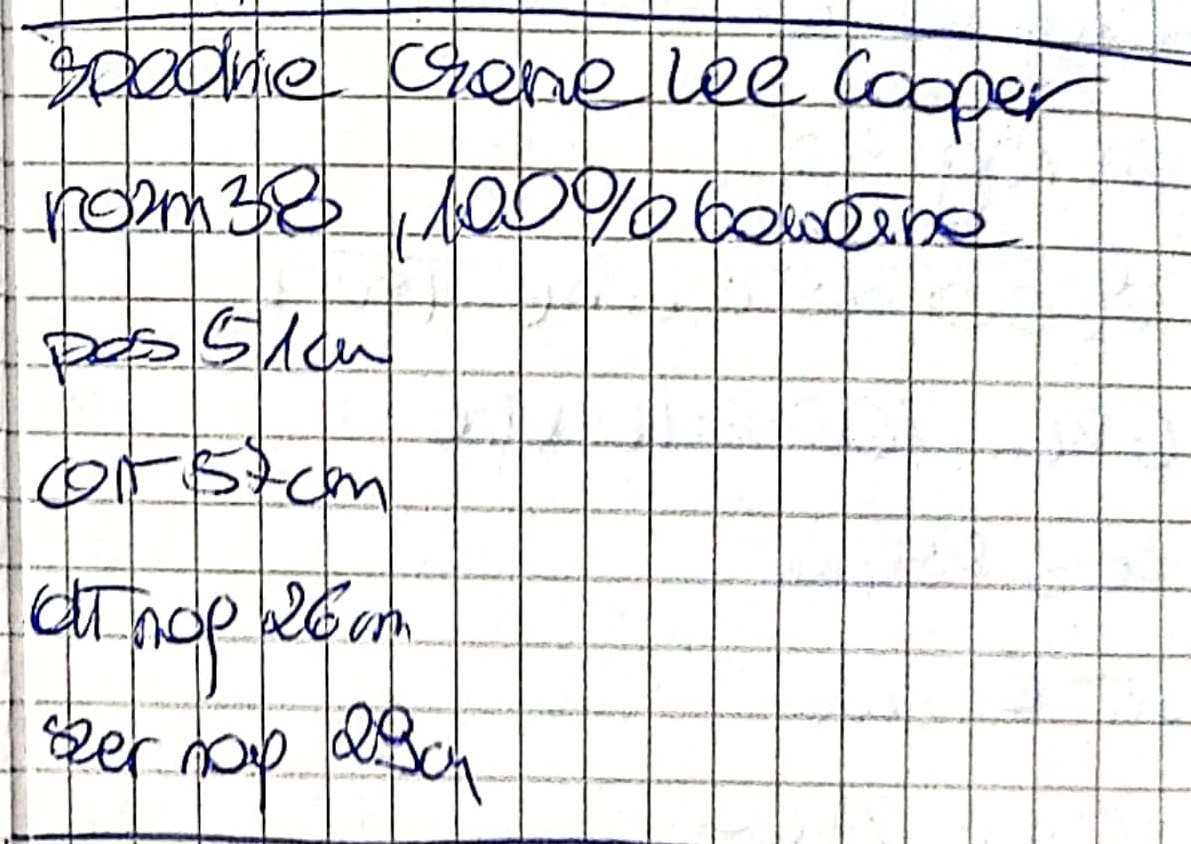 spodnie czarne Lee Cooper
rozm 38, 100% bawełna
pas 51cm
dł 57cm
dł nog 26cm
szer nog 29cm